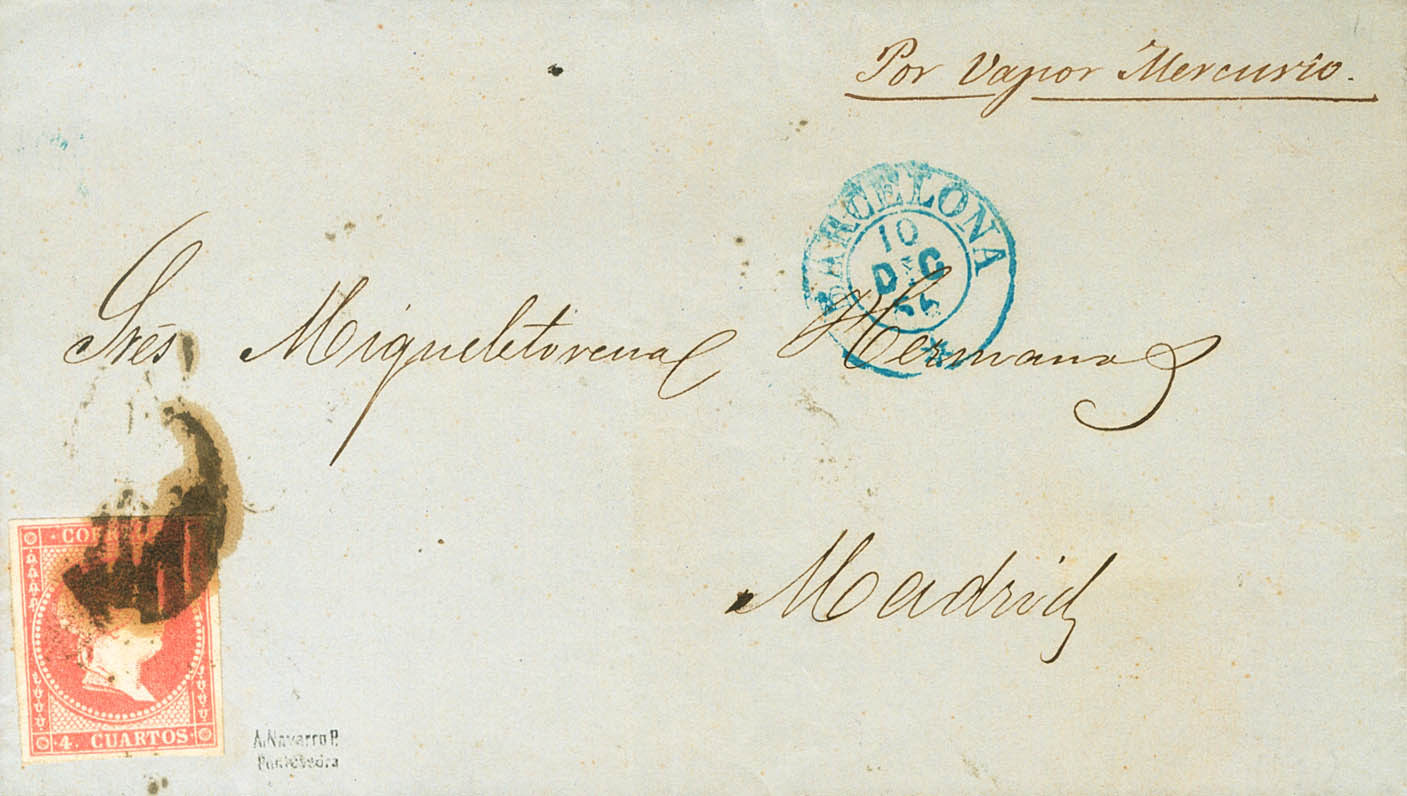 Por Vapor Mercurio.
BARCELONA
10
DIC
Srés Migueletorena Hermanos
Madrid
CORREOS
4. CUARTOS
A. Navarro P.
Pontevedra